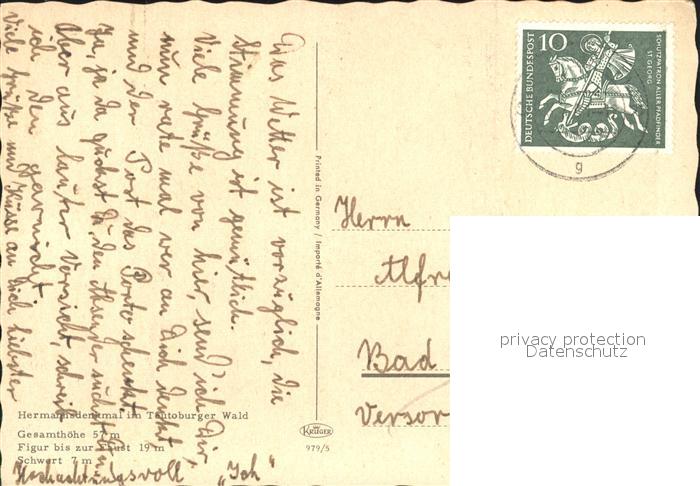 Das Wetter ist vorzüglich, die
Stimmung ist gemütlich.
Viele Grüße von hier, send' ich Dir,
nun rate mal wer an Dich denkt
und der Post das Porto schenkt.
Ja, ja da guckst Du, den Absender suchst Du
Aber aus lauter Vorsicht, schreib
ich den garnicht
Viele Grüße und Küsse an Dich liebster
Hochachtungsvoll „Ich“
Hermannsdenkmal im Teutoburger Wald
Gesamthöhe 57 m
Figur bis zur Faust 19 m
Schwert 7 m
Printed in Germany / Importé d'Allemagne
KRÜGER
979/5
10
DEUTSCHE BUNDESPOST
SCHUTZPATRON ALLER PFADFINDER
ST. GEORG
g
Herrn
Alfre
Bad
Versor
privacy protection
Datenschutz